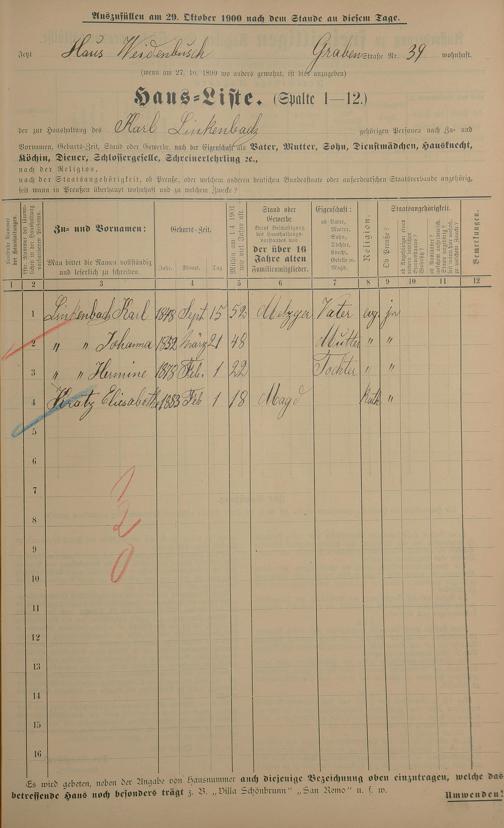 Auszufüllen am 29. Oktober 1900 nach dem Stande an diesem Tage.
Jetzt Haus Weidenbusch Graben Straße Nr. 39 wohnhaft.
(wenn am 27. 10. 1899 wo anders gewohnt, ist dies anzugeben)
Haus-Liste. (Spalte 1—12.)
der zur Haushaltung des Karl Linkenbach gehörigen Personen nach Zu- und
Vornamen, Geburts-Zeit, Stand oder Gewerbe, nach der Eigenschaft als Vater, Mutter, Sohn, Dienstmädchen, Hausknecht,
Köchin, Diener, Schlossergeselle, Schreinerlehrling ꝛc.,
nach der Religion,
nach der Staatsangehörigkeit, ob Preuße, oder welchem anderen deutschen Bundesstaate oder außerdeutschen Staatsverbande angehörig,
seit wann in Preußen überhaupt wohnhaft und zu welchem Zwecke?
Zu- und Vornamen:
Man bittet die Namen vollständig
und leserlich zu schreiben.
Geburts-Zeit.
Jahr. Monat. Tag.
Stand oder
Gewerbe
der über 16
Jahre alten
Familienmitglieder.
Eigenschaft:
ob Vater,
Mutter,
Sohn,
Tochter,
Magd.
Religion.
Staatsangehörigkeit.
Ob Preuße?
Bemerkungen.
1 2 3 4 5 6 7 8 9 10 11 12
1 Linkenbach Karl 1848 Sept. 15 52 Metzger Vater evg. ja
2 " " Johanna 1852 März 21 48 Mutter " "
3 " " Hermine 1878 Feb. 1 22 Tochter " "
4 Kratz Eliesabethe 1883 Feb 1 18 Magd Kath "
5
6
7
8
9
10
11
12
13
14
15
16
1
2
0
Es wird gebeten, neben der Angabe von Hausnummer auch diejenige Bezeichnung oben einzutragen, welche das
betreffende Haus noch besonders trägt z. B. „Villa Schönbrunn" „San Remo" u. s. w.
Umwenden!